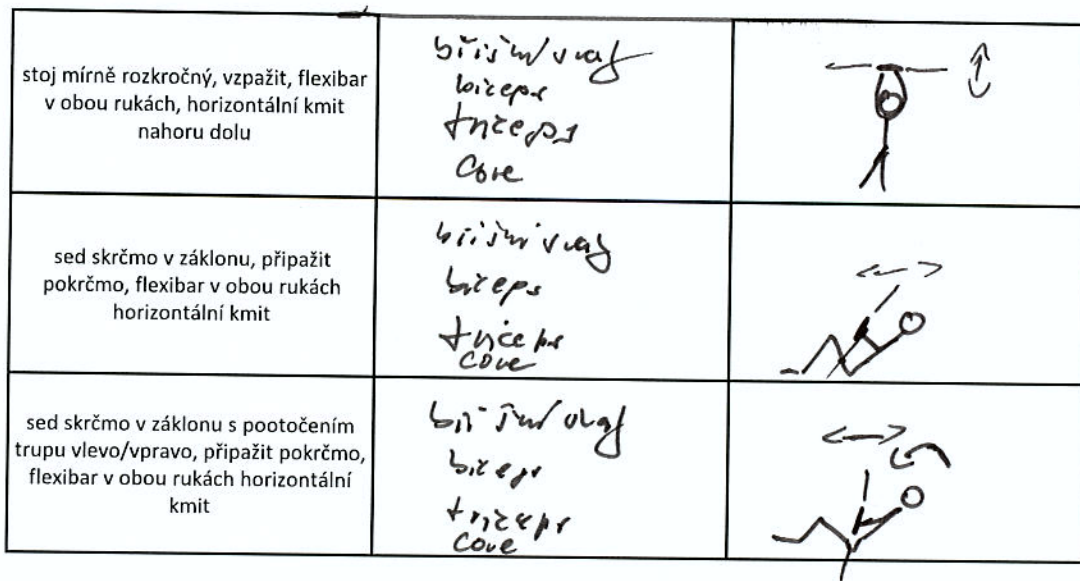 stoj mírně rozkročný, vzpažit, flexibar
v obou rukách, horizontální kmit
nahoru dolu
břišní svaly
biceps
triceps
Core
sed skrčmo v záklonu, připažit
pokrčmo, flexibar v obou rukách
horizontální kmit
břišní svaly
biceps
triceps
core
sed skrčmo v záklonu s pootočením
trupu vlevo/vpravo, připažit pokrčmo,
flexibar v obou rukách horizontální
kmit
břišní svaly
biceps
triceps
core